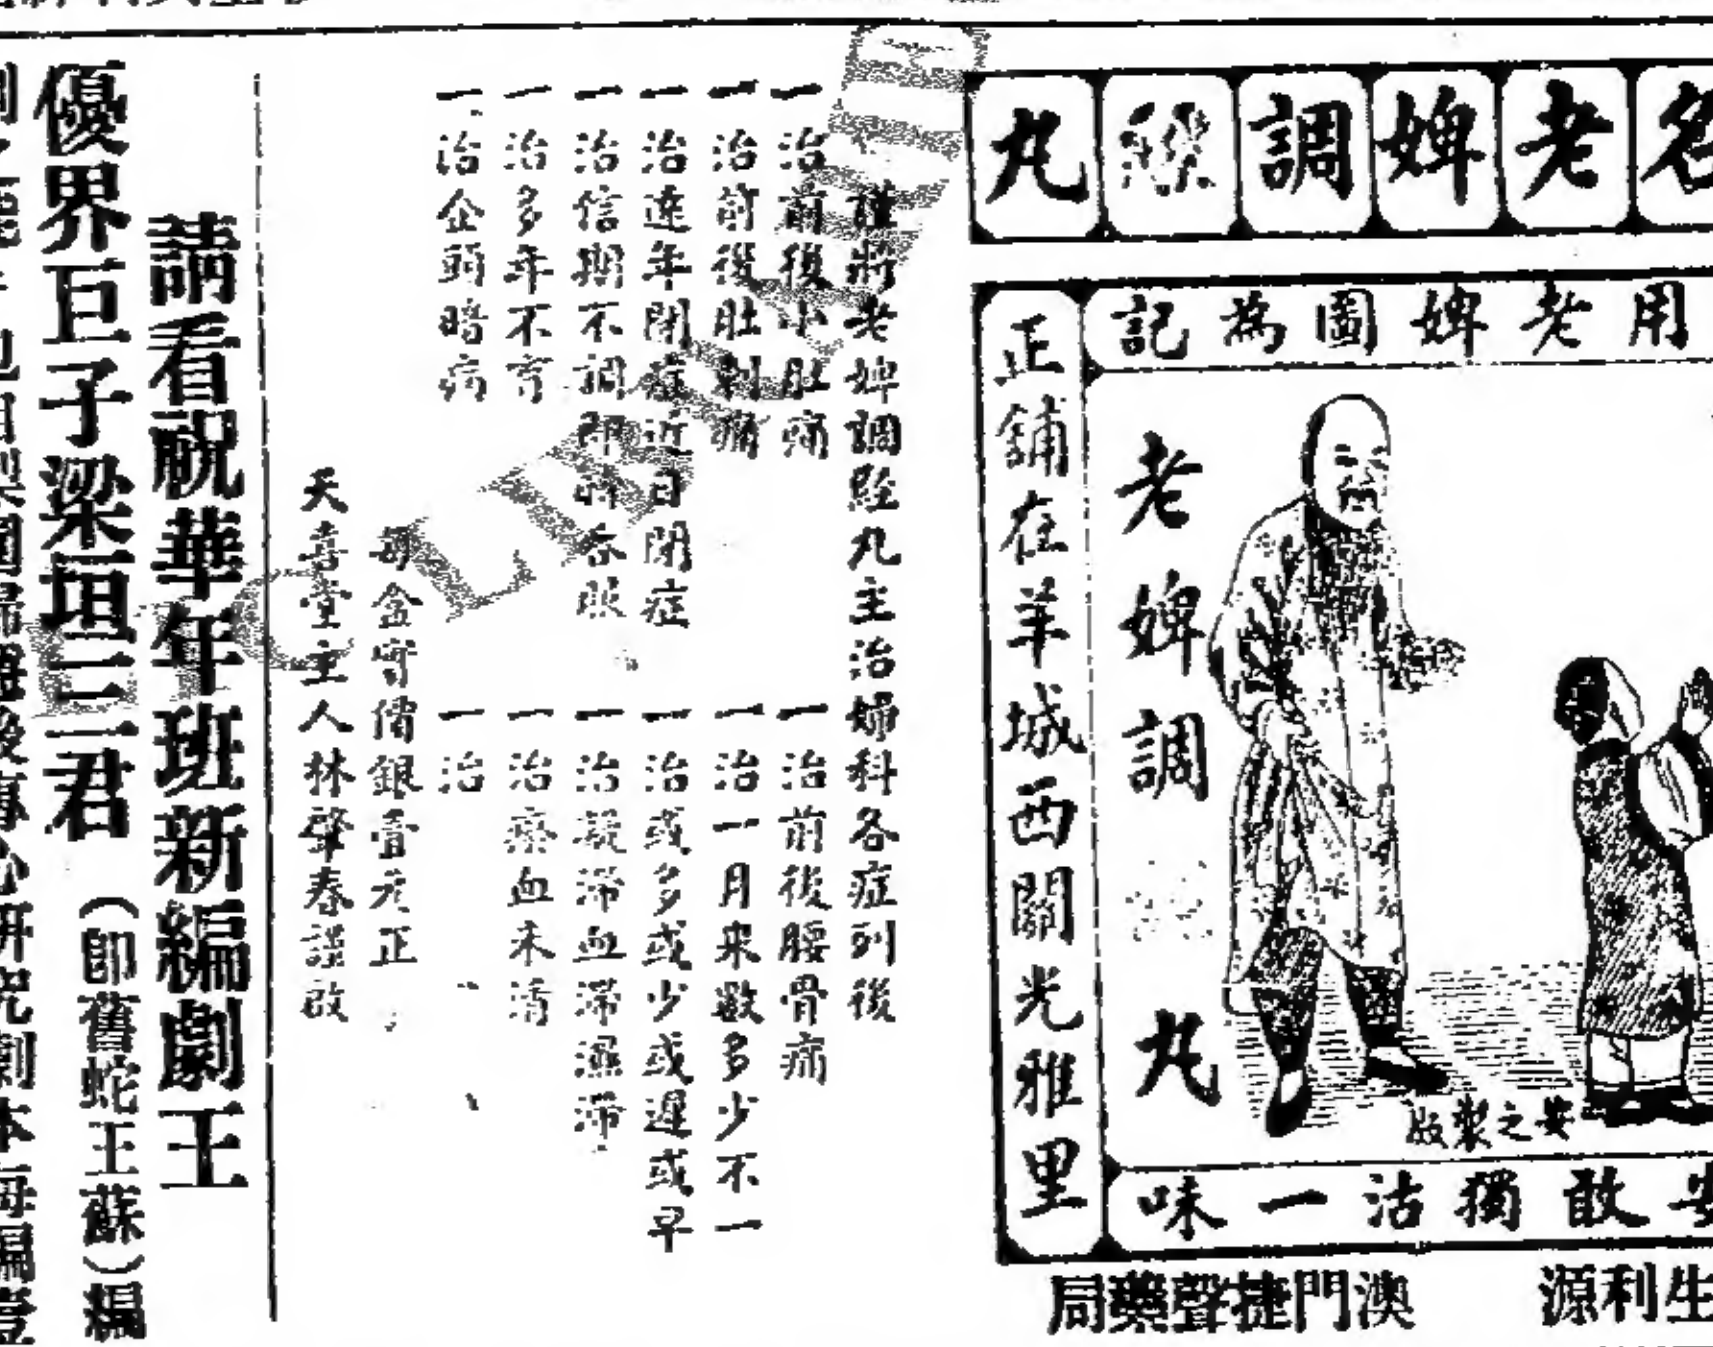 名老婢調經丸
用老婢圖為記
正舖在羊城西關光雅里
老婢調
丸
安之製版
安敢獨沽一味
生利源
澳門捷聲藥局
謹將老婢調經丸主治婦科各症列後
一治前後小肚痛
一治前後腰骨痛
一治前後肚刺痛
一治一月來數多少不一
一治遠年閉症近日閉症
一治或多或少或遲或早
一治信期不調即對合服
一治凝滯血滯濕滯
一治多年不育
一治瘀血未清
一治企頭暗病
一治
每盒實價銀壹元正
天喜堂主人林聲春謹啟
請看祝華年班新編劇王
優界巨子梁垣三君(即舊蛇王蘇)編